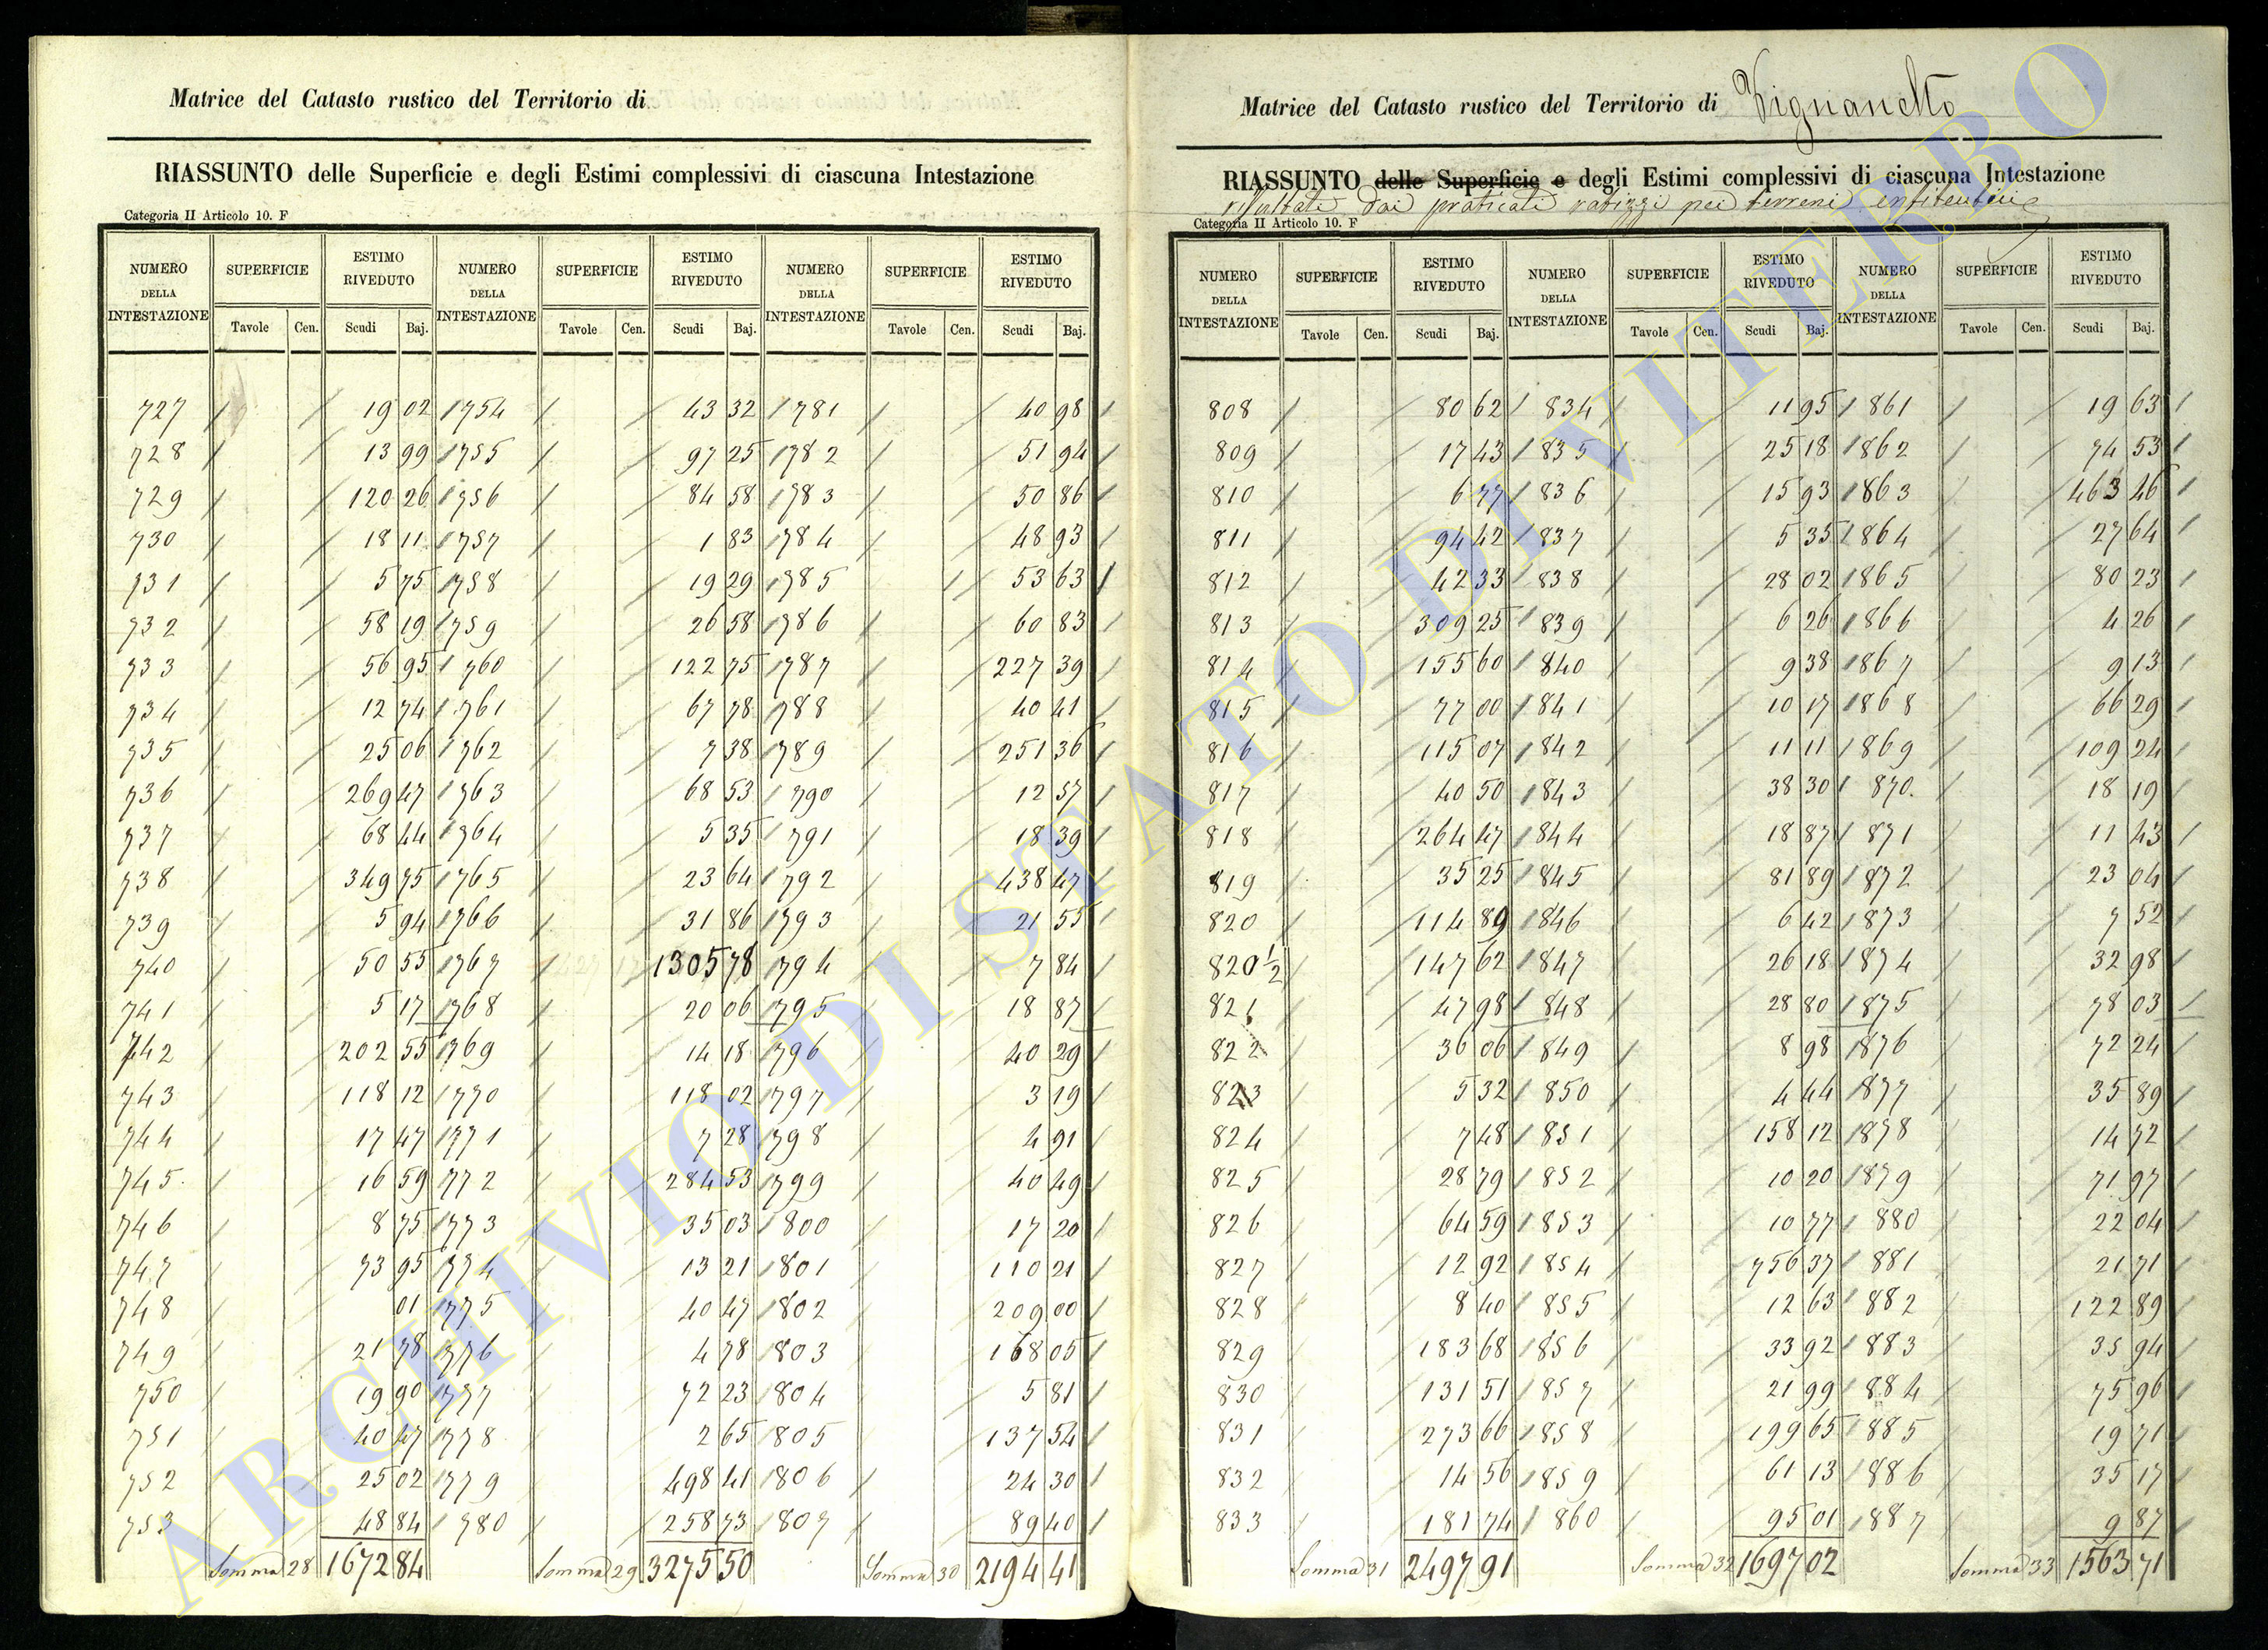 Matrice del Catasto rustico del Territorio di
RIASSUNTO delle Superficie e degli Estimi complessivi di ciascuna Intestazione
Categoria II Articolo 10. F
NUMERO DELLA INTESTAZIONE SUPERFICIE ESTIMO RIVEDUTO NUMERO DELLA INTESTAZIONE SUPERFICIE ESTIMO RIVEDUTO NUMERO DELLA INTESTAZIONE SUPERFICIE ESTIMO RIVEDUTO
Tavole Cen. Scudi Baj. Tavole Cen. Scudi Baj. Tavole Cen. Scudi Baj.
727 19 02 754 43 32 781 40 98
728 13 99 755 97 25 782 51 94
729 120 26 756 84 58 783 50 86
730 18 11 757 1 83 784 48 93
731 5 75 758 19 29 785 53 63
732 58 19 759 26 58 786 60 83
733 56 95 760 122 75 787 227 39
734 12 74 761 67 78 788 40 41
735 25 06 762 7 38 789 251 36
736 269 47 763 68 53 790 12 57
737 68 44 764 5 35 791 18 39
738 349 75 765 23 64 792 438 47
739 5 94 766 31 86 793 21 55
740 50 55 767 1305 78 794 7 84
741 5 17 768 20 06 795 18 87
742 202 55 769 14 18 796 40 29
743 118 12 770 118 02 797 3 19
744 17 47 771 7 28 798 4 91
745 16 59 772 284 53 799 40 49
746 8 75 773 35 03 800 17 20
747 73 95 774 13 21 801 110 21
748 01 775 40 47 802 209 00
749 21 78 776 4 78 803 168 05
750 19 90 777 72 23 804 5 81
751 40 47 778 2 65 805 137 54
752 25 02 779 498 41 806 24 30
753 48 84 780 258 73 807 89 40
Somma 28 1672 84 Somma 29 3275 50 Somma 30 2194 41
Matrice del Catasto rustico del Territorio di Vignanello
RIASSUNTO delle Superficie e degli Estimi complessivi di ciascuna Intestazione
risultati dai praticati ratizzi pei terreni enfiteutici
Categoria II Articolo 10. F
NUMERO DELLA INTESTAZIONE SUPERFICIE ESTIMO RIVEDUTO NUMERO DELLA INTESTAZIONE SUPERFICIE ESTIMO RIVEDUTO NUMERO DELLA INTESTAZIONE SUPERFICIE ESTIMO RIVEDUTO
Tavole Cen. Scudi Baj. Tavole Cen. Scudi Baj. Tavole Cen. Scudi Baj.
808 80 62 834 11 95 861 19 63
809 17 43 835 25 18 862 74 53
810 6 77 836 15 93 863 463 46
811 94 42 837 5 35 864 27 64
812 42 33 838 28 02 865 80 23
813 309 25 839 6 26 866 4 26
814 155 60 840 9 38 867 9 13
815 77 00 841 10 17 868 66 29
816 115 07 842 11 11 869 109 24
817 40 50 843 38 30 870 18 19
818 264 47 844 18 87 871 11 43
819 35 25 845 81 89 872 23 04
820 114 89 846 6 42 873 7 52
820 1/2 147 62 847 26 18 874 32 98
821 47 98 848 28 80 875 78 03
822 36 06 849 8 98 876 72 24
823 5 32 850 4 44 877 35 89
824 7 48 851 158 12 878 14 72
825 28 79 852 10 20 879 71 97
826 64 59 853 10 77 880 22 04
827 12 92 854 756 37 881 21 71
828 8 40 855 12 63 882 122 89
829 183 68 856 33 92 883 35 94
830 131 51 857 21 99 884 75 96
831 273 66 858 199 65 885 19 71
832 14 56 859 61 13 886 35 17
833 181 74 860 95 01 887 9 87
Somma 31 2497 91 Somma 32 1697 02 Somma 33 1563 71
ARCHIVIO DI STATO DI VITERBO